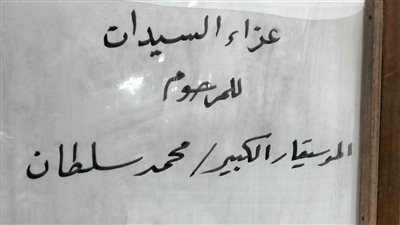 عزاء السيدات
للمرحوم
الموسيقار الكبير / محمد سلطان